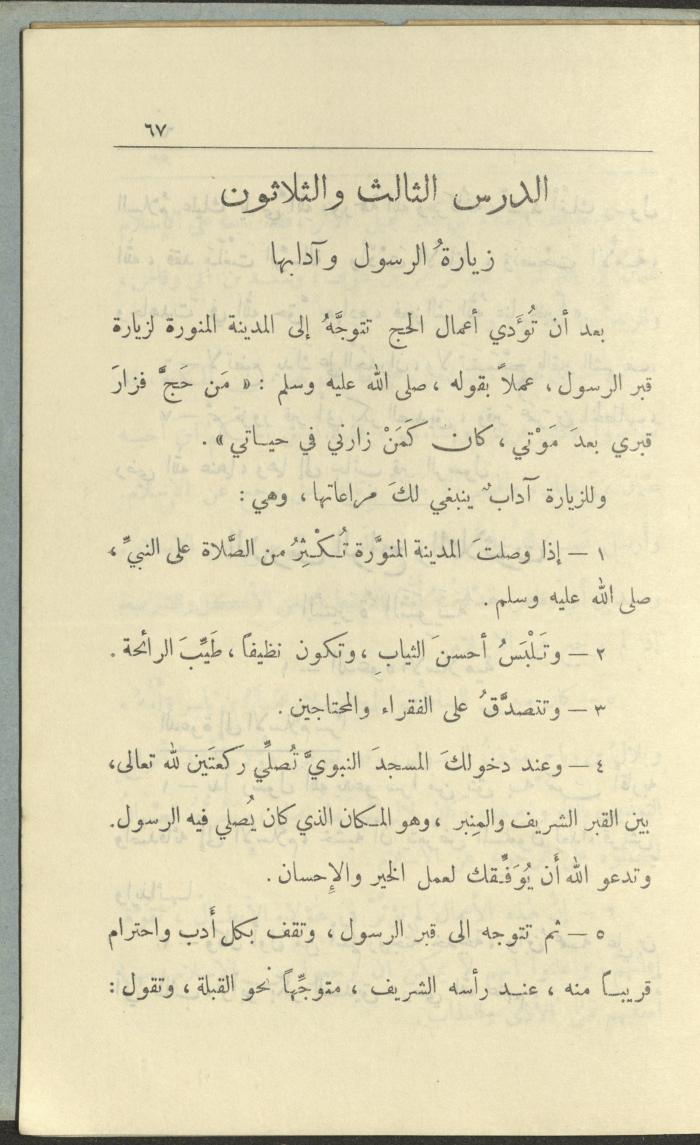 ٦٧
الدرس الثالث والثلاثون
زيارةُ الرسول وآدابها
بعد أن تُؤَدي أعمال الحج تتوجَّهُ إلى المدينة المنورة لزيارة
قبر الرسول، عملاً بقوله، صلى الله عليه وسلم : « مَن حَجَّ فزارَ
قبري بعدَ مَوْتي، كان كَمَنْ زارني في حياتي» .
وللزيارة آدابٌ ينبغي لكَ مراعاتها، وهي :
١ – إذا وصلتَ المدينة المنوَّرة تُكْثِرُ من الصَّلاة على النبيِّ،
صلى الله عليه وسلم .
٢ – وتَلْبَسُ أحسنَ الثيابِ، وتكون نظيفاً، طَيِّبَ الرائحة .
٣ – وتتصدَّقُ على الفقراء والمحتاجين .
٤ – وعند دخولكَ المسجدَ النبويَّ تُصلِّي ركعتَين لله تعالى،
بين القبر الشريف والمنِبر ، وهو المكان الذي كان يُصلي فيه الرسول.
وتدعو الله أَن يُوَفِّقك لعمل الخير والإِحسان .
٥ – ثم تتوجه الى قبر الرسول، وتقف بكل أَدب واحترام
قريباً منه ، عند رأسه الشريف ، متوجِّهاً نحو القبلة ، وتقول :